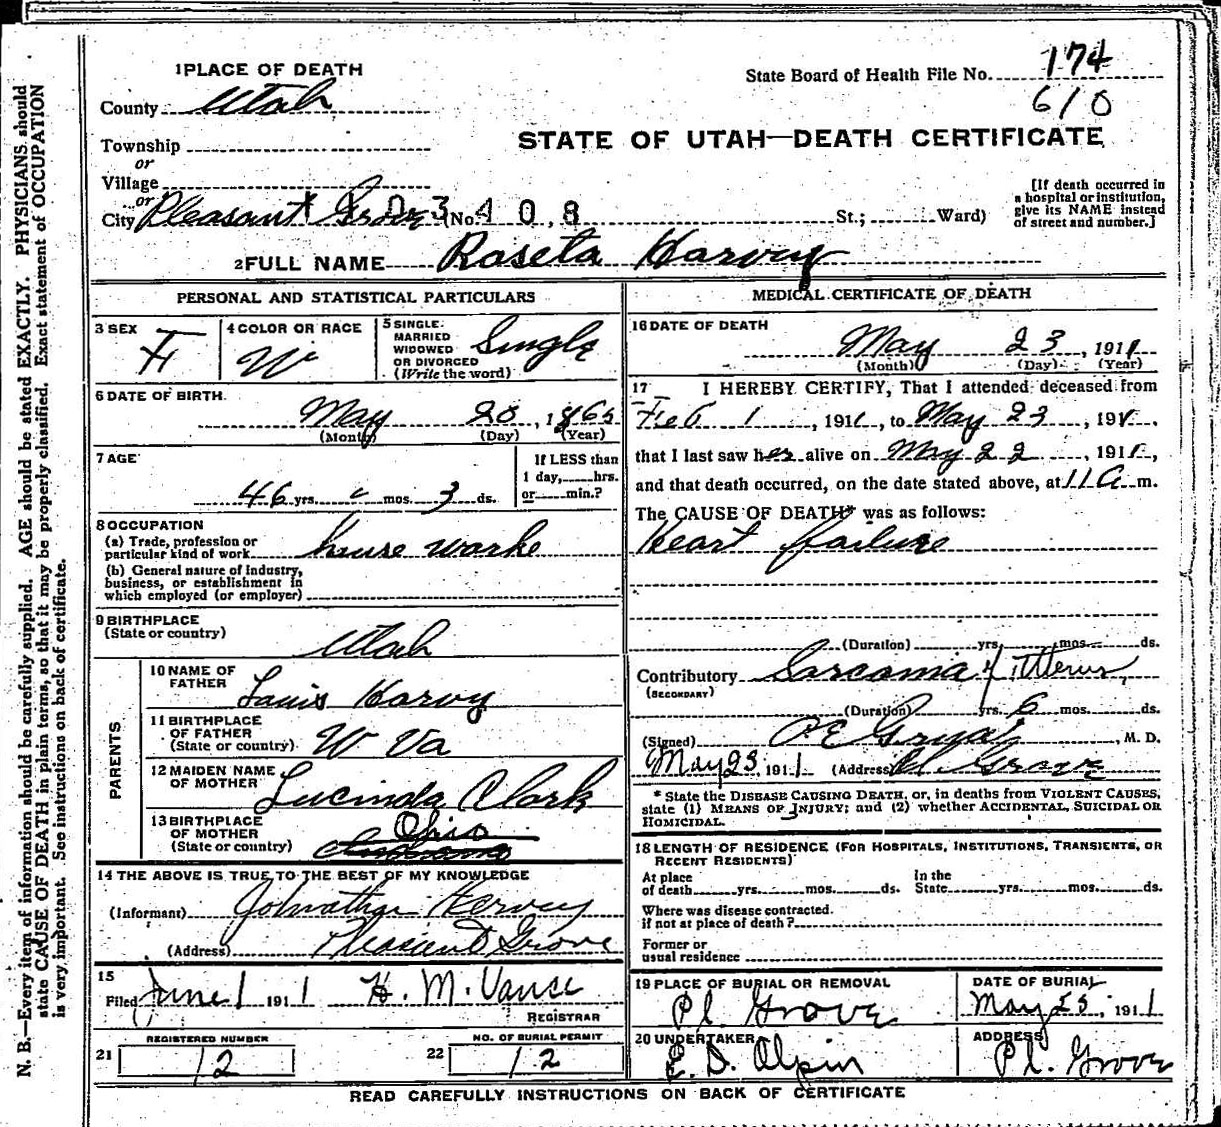 N. B.—Every item of information should be carefully supplied. AGE should be stated EXACTLY. PHYSICIANS should
state CAUSE OF DEATH in plain terms, so that it may be properly classified. Exact statement of OCCUPATION
is very important. See instructions on back of certificate.
1 PLACE OF DEATH
County Utah
Township
or
Village
or
City Pleasant Grove (No. St.; Ward)
D 3 4 0 8
State Board of Health File No. 174
610
STATE OF UTAH—DEATH CERTIFICATE
[If death occurred in
a hospital or institution,
give its NAME instead
of street and number.]
2 FULL NAME Roseta Harvey
PERSONAL AND STATISTICAL PARTICULARS
3 SEX F
4 COLOR OR RACE W
5 SINGLE,
MARRIED
WIDOWED
OR DIVORCED
(Write the word) Single
6 DATE OF BIRTH
May 20, 1865
(Month) (Day) (Year)
7 AGE
46 yrs. mos. 3 ds.
If LESS than
1 day, hrs.
or min.?
8 OCCUPATION
(a) Trade, profession or
particular kind of work house worke
(b) General nature of Industry,
business, or establishment in
which employed (or employer)
9 BIRTHPLACE
(State or country) Utah
PARENTS
10 NAME OF
FATHER Louis Harvy
11 BIRTHPLACE
OF FATHER
(State or country) W Va
12 MAIDEN NAME
OF MOTHER Lucinda Clark
13 BIRTHPLACE
OF MOTHER
(State or country) Ohio
14 THE ABOVE IS TRUE TO THE BEST OF MY KNOWLEDGE
(Informant) Johnathan Harvey
(Address) Pleasient Grove
15
Filed June 1 1911 H. M. Vance
REGISTRAR
21 REGISTERED NUMBER
12
22 NO. OF BURIAL PERMIT
12
MEDICAL CERTIFICATE OF DEATH
16 DATE OF DEATH
May 23, 1911
(Month) (Day) (Year)
17 I HEREBY CERTIFY, That I attended deceased from
Feb 1, 1911, to May 23, 191
that I last saw her alive on May 22, 1911,
and that death occurred, on the date stated above, at 11 a m.
The CAUSE OF DEATH* was as follows:
Heart failure
(Duration) yrs. mos. ds.
Contributory Sarcoma of Uterus,
(SECONDARY)
(Duration) yrs. 6 mos. ds.
(Signed) , M. D.
May 23, 1911 (Address) Pl. Grove
* State the DISEASE CAUSING DEATH, or, in deaths from VIOLENT CAUSES,
state (1) MEANS OF INJURY; and (2) whether ACCIDENTAL, SUICIDAL OR
HOMICIDAL.
18 LENGTH OF RESIDENCE (FOR HOSPITALS, INSTITUTIONS, TRANSIENTS, OR
RECENT RESIDENTS)
At place
of death yrs. mos. ds.
In the
State yrs. mos. ds.
Where was disease contracted.
if not at place of death?
Former or
usual residence
19 PLACE OF BURIAL OR REMOVAL
Pl Grove
DATE OF BURIAL
May 25, 1911
20 UNDERTAKER
E. D. Olpin
ADDRESS
Pl. Grove
READ CAREFULLY INSTRUCTIONS ON BACK OF CERTIFICATE